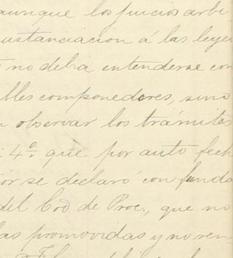 aunque los juicios arbi
sustanciacion á las leyes
no deba entenderse con
bles componedores, sino
observar los trámites
4º que por auto fech
or se declaró con funda
del Cód de Proc, que no
las promovidas y no ren